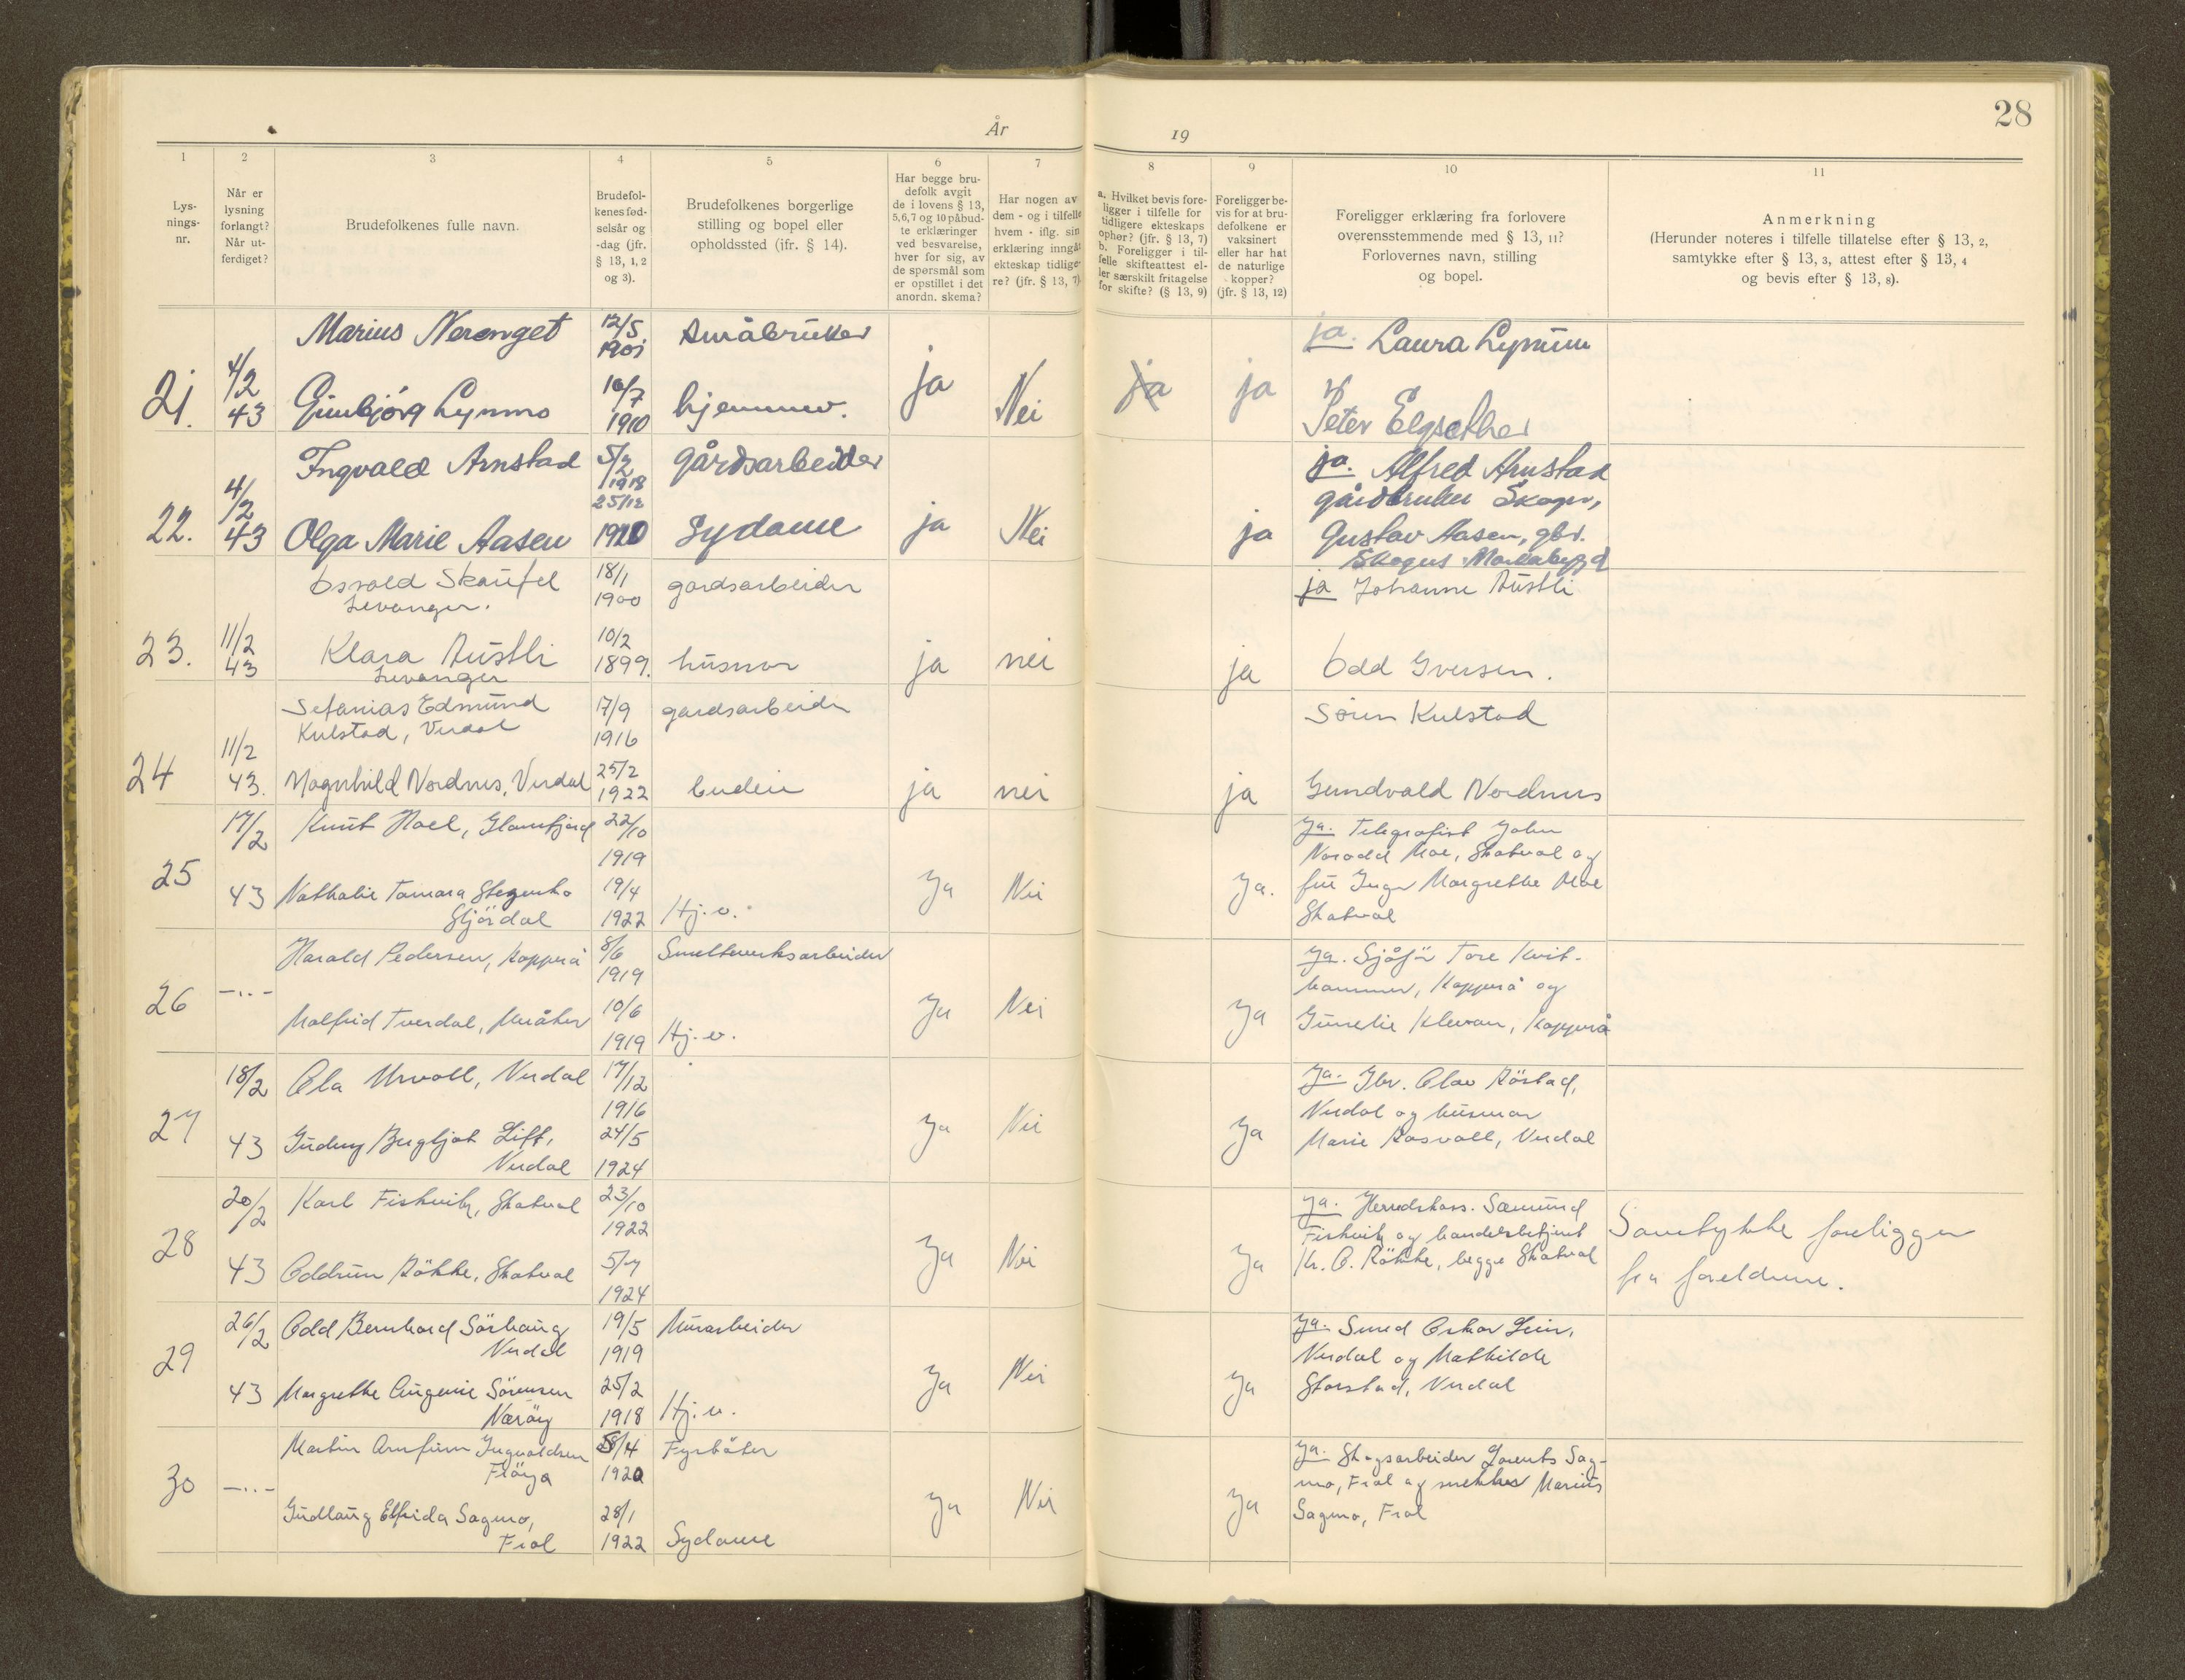 28
År
19
1
2
3
4
5
6
7
8
9
10
11
Lys-
nings-
nr.
Når er
lysning
forlangt?
Når ut-
ferdiget?
Brudefolkenes fulle navn.
Brudefol-
kenes fød-
selsår og
-dag (jfr.
§ 13, 1, 2
og 3).
Brudefolkenes borgerlige
stilling og bopel eller
opholdssted (jfr. § 14).
Har begge bru-
defolk avgit
de i lovens § 13,
5,6,7 og 10 påbud-
te erklæringer
ved besvarelse,
hver for sig, av
de spørsmål som
er opstillet i det
anordn. skema?
Har nogen av
dem - og i tilfelle
hvem - iflg. sin
erklæring inngåt
ekteskap tidlige-
re? (jfr. § 13, 7)
a. Hvilket bevis fore-
ligger i tilfelle for
tidligere ekteskaps
ophør? (jfr. § 13, 7)
b. Foreligger i til-
felle skifteattest el-
ler særskilt fritagelse
for skifte? (§ 13, 9)
Foreligger be-
vis for at bru-
defolkene er
vaksinert
eller har hat
de naturlige
kopper?
(jfr. § 13, 12)
Foreligger erklæring fra forlovere
overensstemmende med § 13, 11?
Forlovernes navn, stilling
og bopel.
Anmerkning
(Herunder noteres i tilfelle tillatelse efter § 13, 2,
samtykke efter § 13, 3, attest efter § 13, 4
og bevis efter § 13, 8).
Marius Nerenget 12/5 1901 Småbruker ja. Laura Lynum
21. 4/2 43 Gunbjørg Lynmo 16/7 1910 hjemmev. ja Nei ja ja
Peter Elgsether
Ingvald Arnstad 5/2 1918 gårdsarbeider ja. Alfred Arnstad
gårdbruker Skogn,
22. 4/2 43 Olga Marie Aasen 25/12 1920 Sydame ja Nei ja Gustav Aasen, gbr.
Skogn Markabygd
Osvald Skaufel 18/1 1900 gardsarbeider ja Johanne Austli
Levanger.
23. 11/2 43 Klara Austli 10/2 1899. husmor ja nei ja Odd Iversen.
Levanger
Sefanias Edmund 17/9 1916 gardsarbeider Sören Kulstad
Kulstad, Verdal
24 11/2 43. Magnhild Nordnes, Verdal 25/2 1922 budeie ja nei ja Gundvald Nordnes
25 17/2 43 Knut Moel, Glomfjord 22/10 1919 ja. Telegrafist John
Narodd Moe, Skatval og
Nathalie Tamara Stezenko 19/4 1922 Hj.v. Ja Nei Ja. fru Inger Margrethe Moe
Stjördal Skatval
Harald Pedersen, Kopperå 8/6 1919 Smelteverksarbeider ja. Sjåfør Tore Kvit-
hammer, Kopperå og
26 -"- Malfrid Tverdal, Meråker 10/6 1919 Hj.v. Ja Nei Ja Gunelie Klevan, Kopperå
27 18/2 43 Ola Urvoll, Verdal 17/12 1916 ja. Gbr. Olav Röstad,
Verdal og husmor
Gudny Bergljot Lift, 24/5 1924 Ja Nei Ja Marie Rosvoll, Verdal
Verdal
28 20/2 43 Karl Fiskvik, Skatval 23/10 1922 ja. Herredskass. Sæmund
Fiskvik og handelsbetjent
Oddrun Rökke, Skatval 5/7 1924 Ja Nei Ja Kr. O. Rökke, begge Skatval
Samtykke foreligger
fra foreldrene.
29 26/2 43 Odd Bernhard Sörhaug 19/5 1919 Murarbeider ja. Smed Oskar Lein,
Verdal Verdal og Mathilde
Margrethe Eugenie Sörensen 25/2 1918 Hj.v. Ja Nei Ja Storstad, Verdal
Næröy
Martin Arnfinn Ingvaldsen 28/4 1920 Fyrbøter ja. Skogsarbeider Lorents Sag-
Fröya mo, Frol og snekker Marius
30 -"- Gudlaug Elfrida Sagmo, 28/1 1922 Sydame Ja Nei Ja Sagmo, Frol
Frol